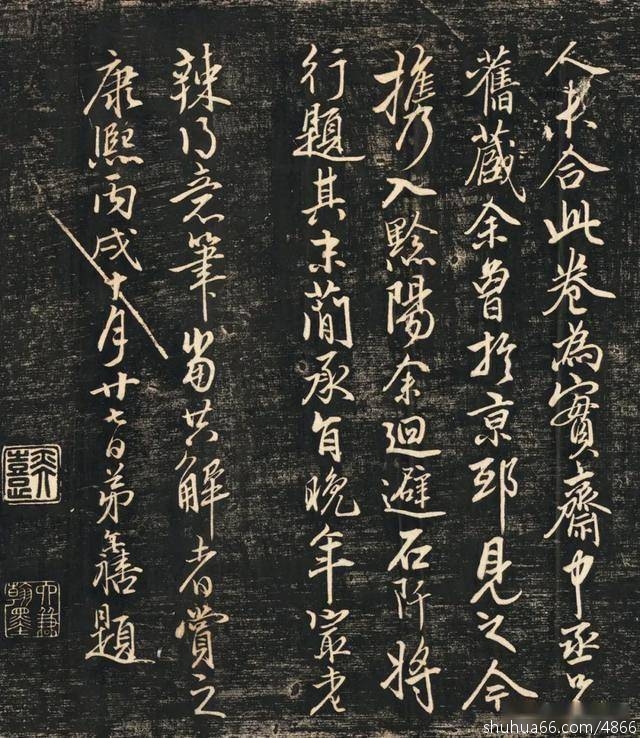 人合此卷為實齋中丞公
舊藏余曾於京邸見之今
攜入黔陽余迴避石阡將
行題其末承旨晚年最老
辣得意筆當共解者賞之
康熙丙戌十月廿七日弟奕禧題
奕禧
shuhua66.com/4866